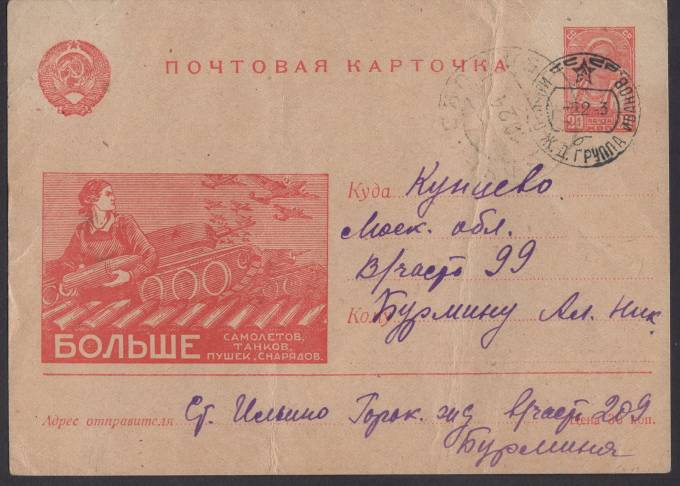 ПОЧТОВАЯ КАРТОЧКА
20
-3
Ж.Д. ГРУППА ИВАНОВ
Куда Кунцево
Моск. обл.
В/часть 99
Кому Бурмину Ал. Ник.
БОЛЬШЕ
САМОЛЕТОВ,
ТАНКОВ,
ПУШЕК, СНАРЯДОВ.
Адрес отправителя Ст. Ильино Горьк. жд В/часть 209
Цена 30 коп.
Бурмина